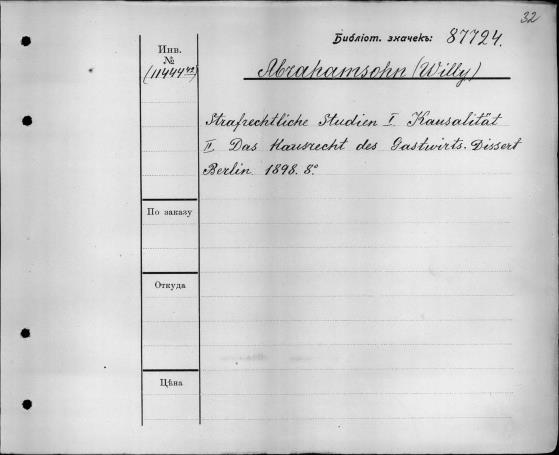 32
Библіот. значекъ: 87724.
Инв.
№
(11444 42)
Abrahamsohn (Willy)
Strafrechtliche Studien I. Kausalität
II. Das Hausrecht des Gastwirts. Dissert
Berlin 1898. 8°
По заказу
Откуда
Цѣна